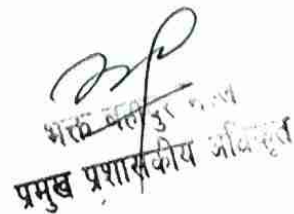 भक्त बहादुर
प्रमुख प्रशासकीय अधिकृत